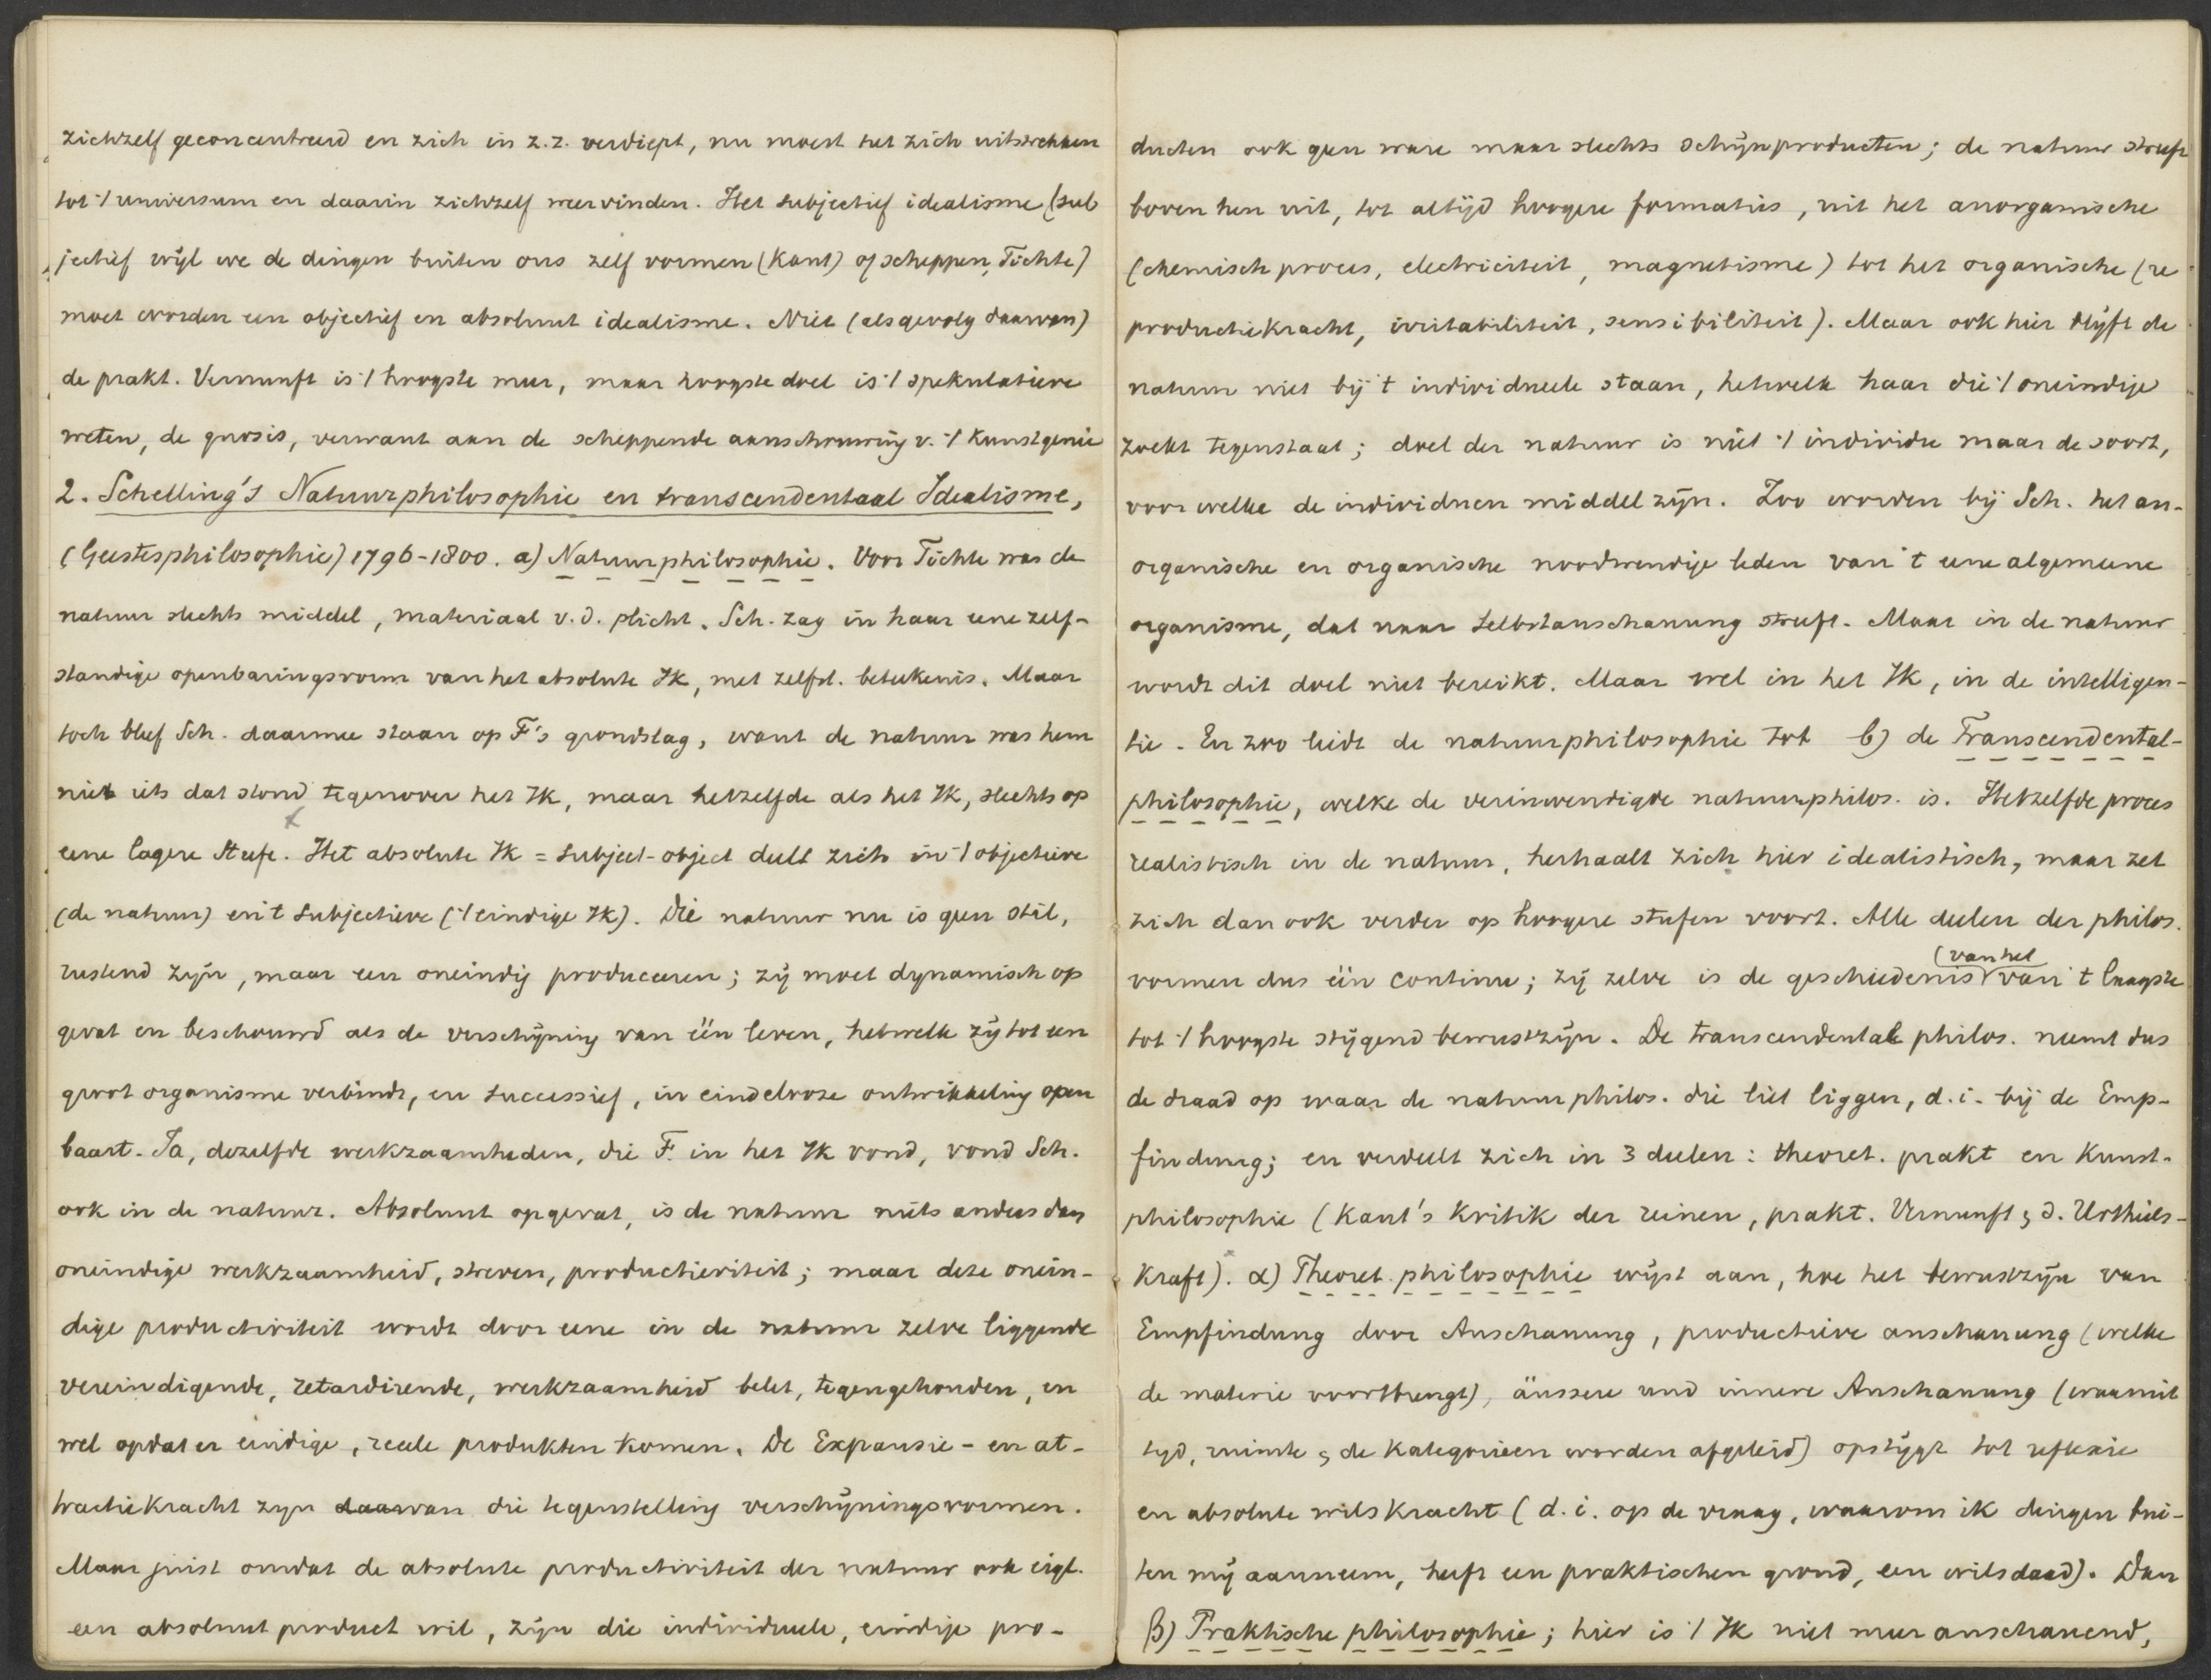 zichzelf geconcentreerd en zich in z.z. verdiept, nu moest het zich uitstrekken
tot 't universum en daarin zichzelf weervinden. Het subjectief idealisme (sub
jectief wijl we de dingen buiten ons zelf vormen (Kant) of scheppen, Fichte)
moet worden een objectief en absoluut idealisme. Niet (als gevolg daarvan)
de prakt. Vernunft is 't hoogste meer, maar hoogste doel is 't spekulatieve
weten, de gnosis, verwant aan de scheppende aanschouwing v. 't Kunstgenie
2. Schelling's Natuurphilosophie en transcendentaal Idealisme,
(Geestesphilosophie) 1796-1800. a) Natuurphilosophie. Voor Fichte was de
natuur slechts middel, materiaal v.d. plicht. Sch. zag in haar eene zelf-
standige openbaringsvorm van het absolute Ik, met zelfst. beteekenis. Maar
toch bleef Sch. daarmee staan op F's grondslag, want de natuur was hem
niet iets dat stond tegenover het Ik, maar hetzelfde als het Ik, slechts op
eene lagere Stufe. Het absolute Ik = subject-object deelt zich in 't objectieve
(de natuur) en 't subjectieve ('t eindige Ik). Die natuur nu is geen stil,
rustend zijn, maar een oneindig produceeren; zij moet dynamisch op
gevat en beschouwd als de verschijning van één leven, hetwelk zij tot een
groot organisme verbindt, en successief, in eindelooze ontwikkeling open
baart. Ja, dezelfde werkzaamheden, die F. in het Ik vond, vond Sch.
ook in de natuur. Absoluut opgevat, is de natuur niets anders dan
oneindige werkzaamheid, streven, productiviteit; maar deze onein-
dige productiviteit wordt door eene in de natuur zelve liggende
vereindigende, retardirende, werkzaamheid belet, tegengehouden, en
wel opdat er eindige, reëele produkten komen. De Expansie- en at-
tractiekracht zijn daarvan die tegenstelling verschijningsvormen.
Maar juist omdat de absolute productiviteit der natuur ook eigl.
een absoluut product wil, zijn die individueele, eindige pro-
ducten ook geen ware maar slechts schijnproducten; de natuur streeft
boven hen uit, tot altijd hoogere formaties, uit het anorganische
(chemisch proces, electriciteit, magnetisme) tot het organische (re
productiekracht, irritabiliteit, sensibiliteit). Maar ook hier blijft de
natuur niet bij 't individueele staan, hetwelk haar die 't oneindige
zoekt tegenstaat; doel der natuur is niet 't individu maar de soort,
voor welke de individuen middel zijn. Zoo worden bij Sch. het an-
organische en organische noodwendige leden van 't eene algemeene
organisme, dat naar Selbstanschauung streeft. Maar in de natuur
wordt dit doel niet bereikt. Maar wel in het Ik, in de intelligen-
tie. En zoo leidt de natuurphilosophie tot b) de Transcendental-
philosophie, welke de verinwendigde natuurphilos. is. Hetzelfde proces
realistisch in de natuur, herhaalt zich hier idealistisch, maar zet
zich dan ook verder op hoogere stufen voort. Alle deelen der philos.
(van het
vormen dus één continu; zij zelve is de geschiedenis van 't laagste
tot 't hoogste stijgend bewustzijn. De transcendentale philos. neemt dus
de draad op waar de natuurphilos. die liet liggen, d.i. bij de Emp-
findung; en verdeelt zich in 3 deelen: theoret. prakt en Kunst-
philosophie (Kant's Kritik der reinen, prakt. Vernunft, d. Urtheils-
kraft). α) Theoret. philosophie wijst aan, hoe het bewustzijn van
Empfindung door Anschauung, productieve anschauung (welke
de materie voortbrengt), äussere und innere Anschauung (waaruit
tijd, ruimte, de Kategorieën worden afgeleid) opstijgt tot reflexie
en absolute wilskracht (d.i. op de vraag, waarom ik dingen bui-
ten mij aanneem, heeft een praktischen grond, een wilsdaad). Dan
β) Praktische philosophie; hier is 't Ik niet meer anschauend,